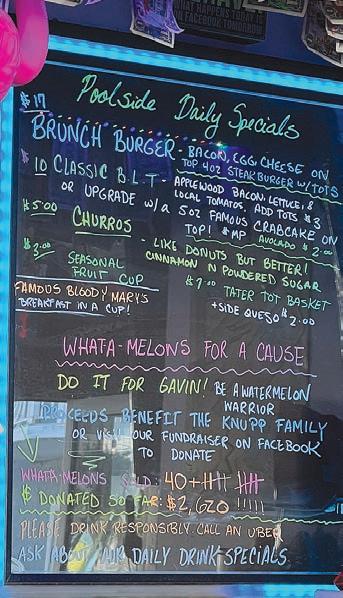 FACEBOOK TOMORROW
Poolside Daily Specials
$17
BRUNCH BURGER - BACON, EGG CHEESE ON
TOP 4OZ STEAKBURGER W/TOTS
$10 CLASSIC B.L.T - APPLEWOOD BACON, LETTUCE &
LOCAL TOMATOES. ADD TOTS $3
OR UPGRADE w/a 5OZ FAMOUS CRABCAKE ON
TOP! $MP AVOCADO $2.00
$5.00 CHURROS - LIKE DONUTS BUT BETTER!
CINNAMON N POWDERED SUGAR
SEASONAL
FRUIT CUP
TATER TOT BASKET
+SIDE QUESO $2.00
FAMOUS BLOODY MARY'S
BREAKFAST IN A CUP!
WHATA-MELONS FOR A CAUSE
DO IT FOR GAVIN! BE A WATERMELON
WARRIOR
PROCEEDS BENEFIT THE KNUPP FAMILY
OR VISIT OUR FUNDRAISER ON FACEBOOK
TO DONATE
WHATA-MELONS SOLD: 40+
$ DONATED SO FAR: $2,620 !!!!!
PLEASE DRINK RESPONSIBLY. CALL AN UBER
ASK ABOUT OUR DAILY DRINK SPECIALS